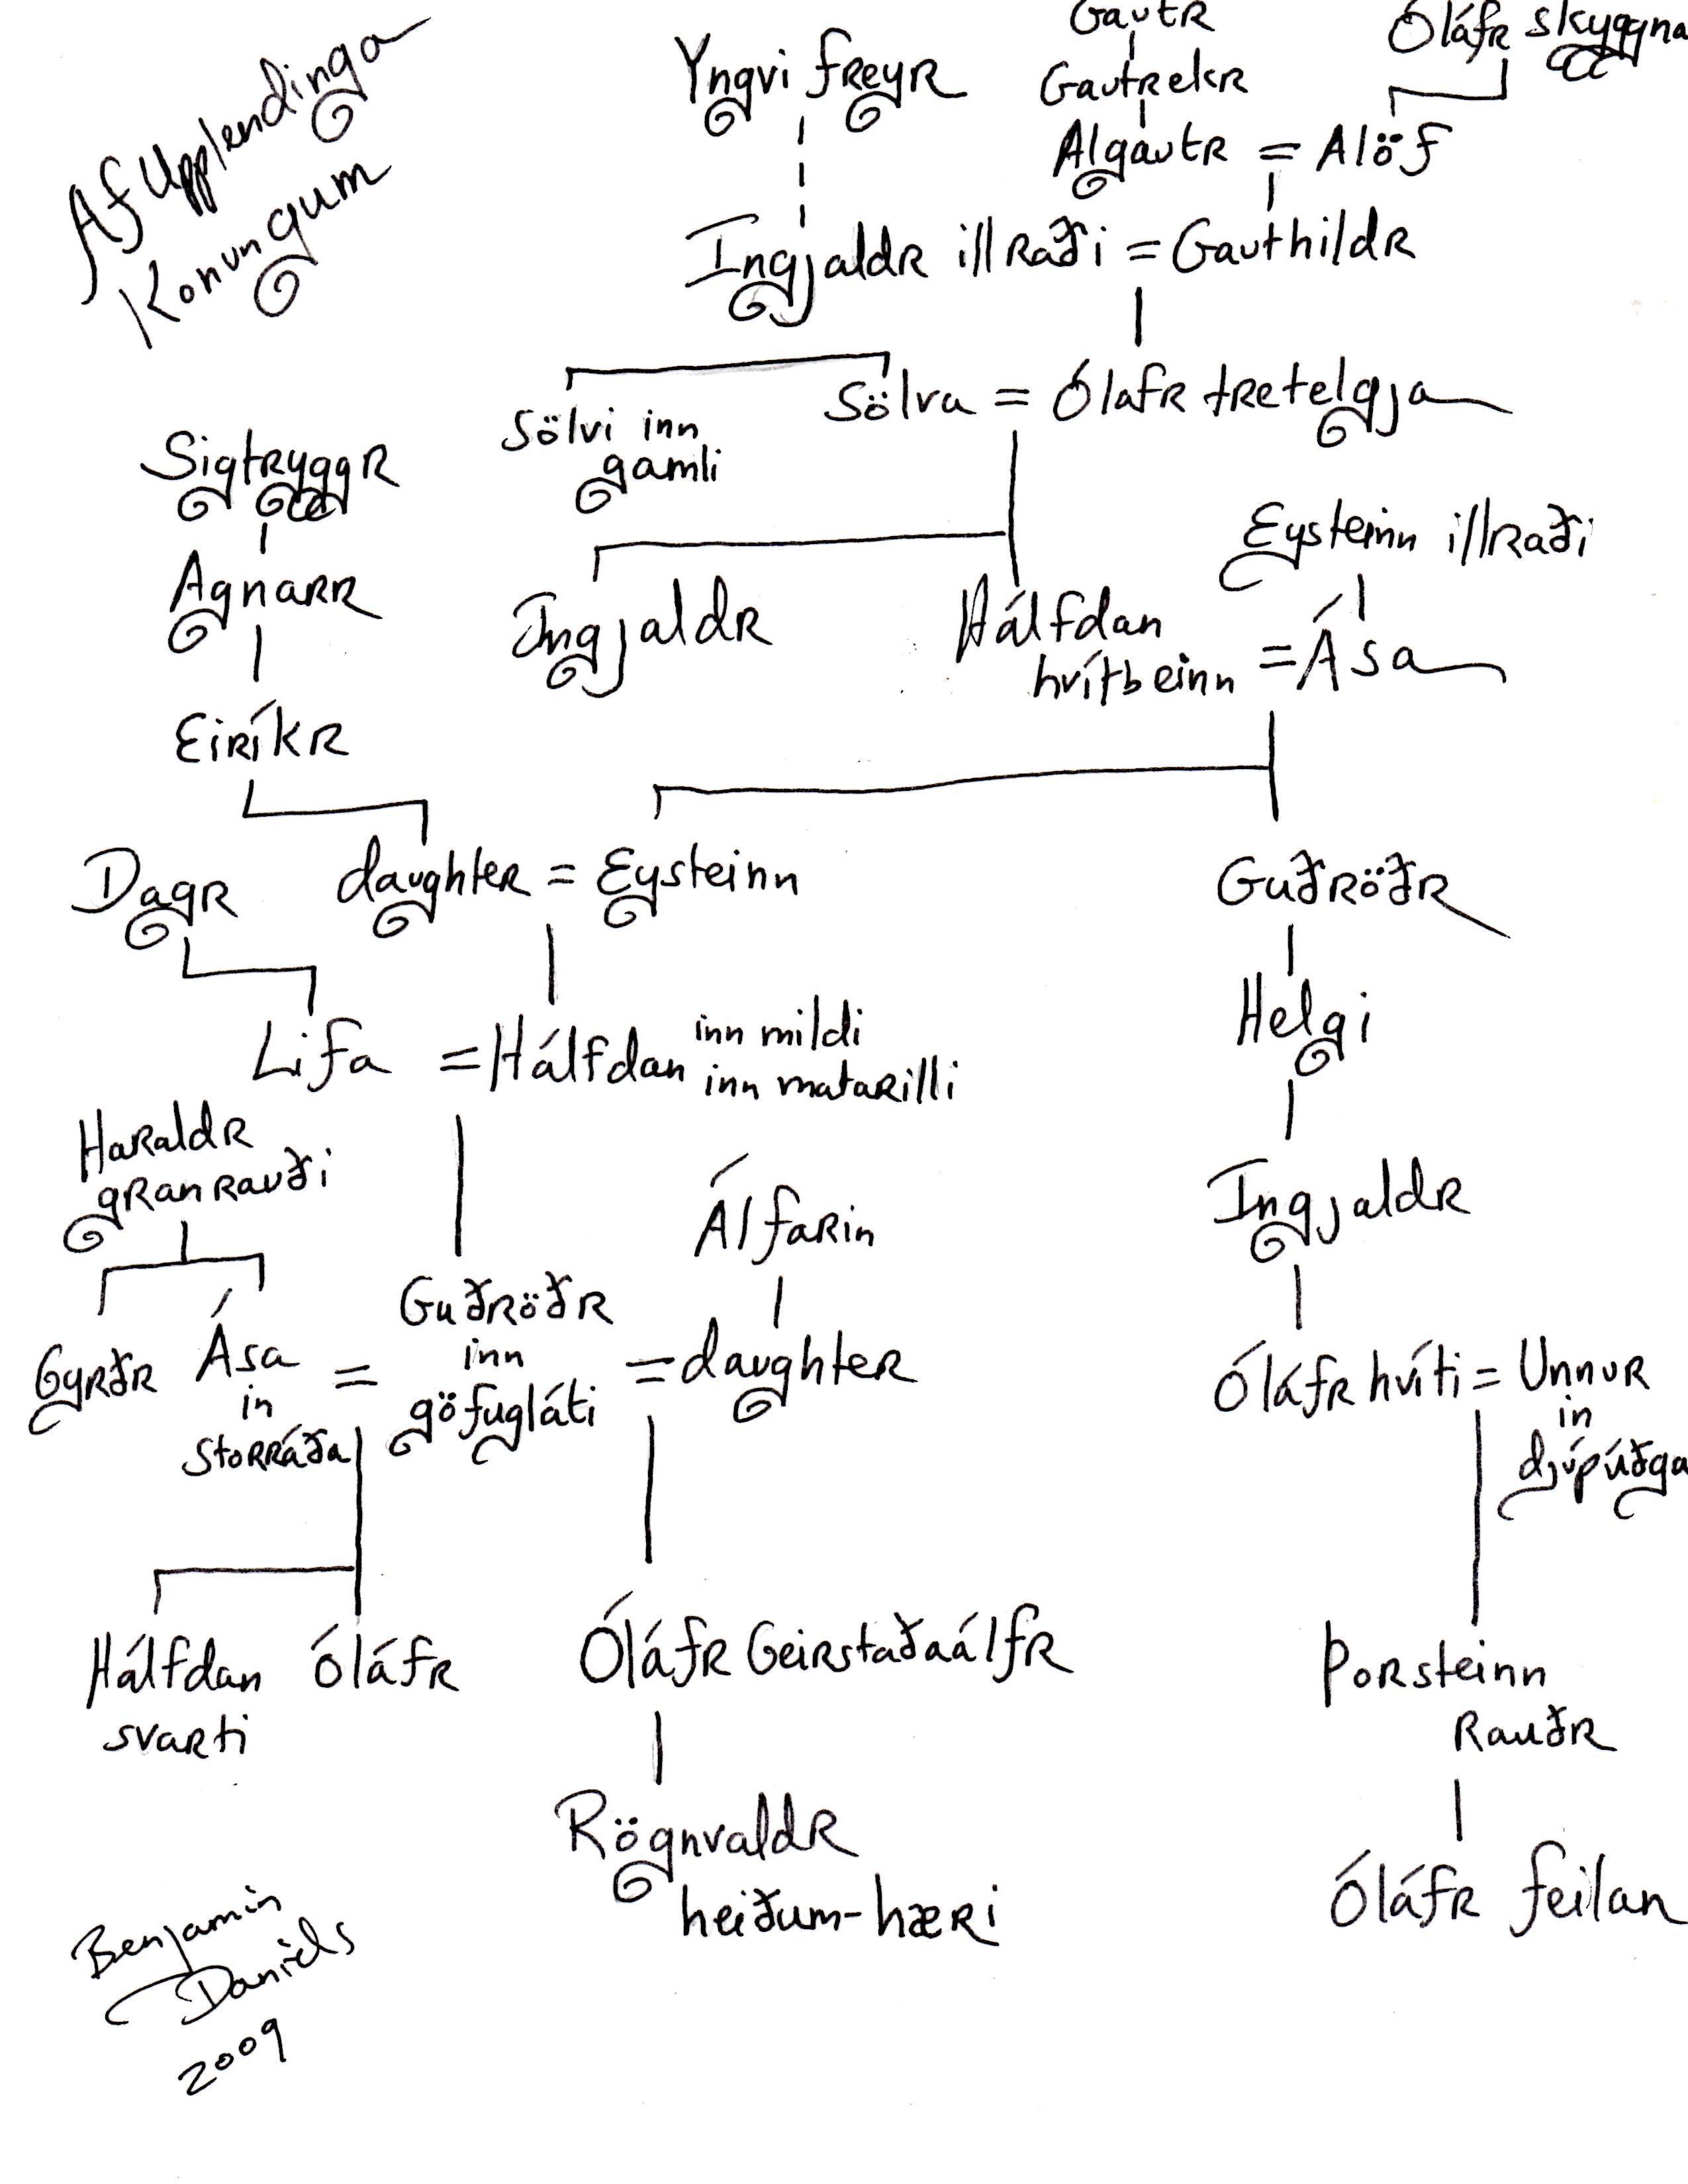 Af Upplendinga
Konungum
Gautr
Óláfr skyggna
Yngvi freyr
Gautrekr
Algautr = Alöf
Ingjaldr illraði = Gauthildr
Sölva = Ólafr tretelgja
Sölvi inn
gamli
Sigtryggr
Eysteinn illraði
Agnarr
Ingjaldr
Hálfdan
hvítbeinn = Ása
Eiríkr
Dagr
daughter = Eysteinn
Guðröðr
Helgi
Lifa = Hálfdan inn mildi
inn matarilli
Haraldr
granrauði
Álfarin
Ingjaldr
Gyrðr
Ása
in
storráða
=
Guðröðr
inn
göfugláti
= daughter
Óláfr hvíti = Unnur
in
djúpúðga
Hálfdan
svarti
Óláfr
Óláfr Geirstaðaálfr
Þorsteinn
Rauðr
Rögnvaldr
heiðum-hæri
Óláfr feilan
Benjamin
Daniels
2009